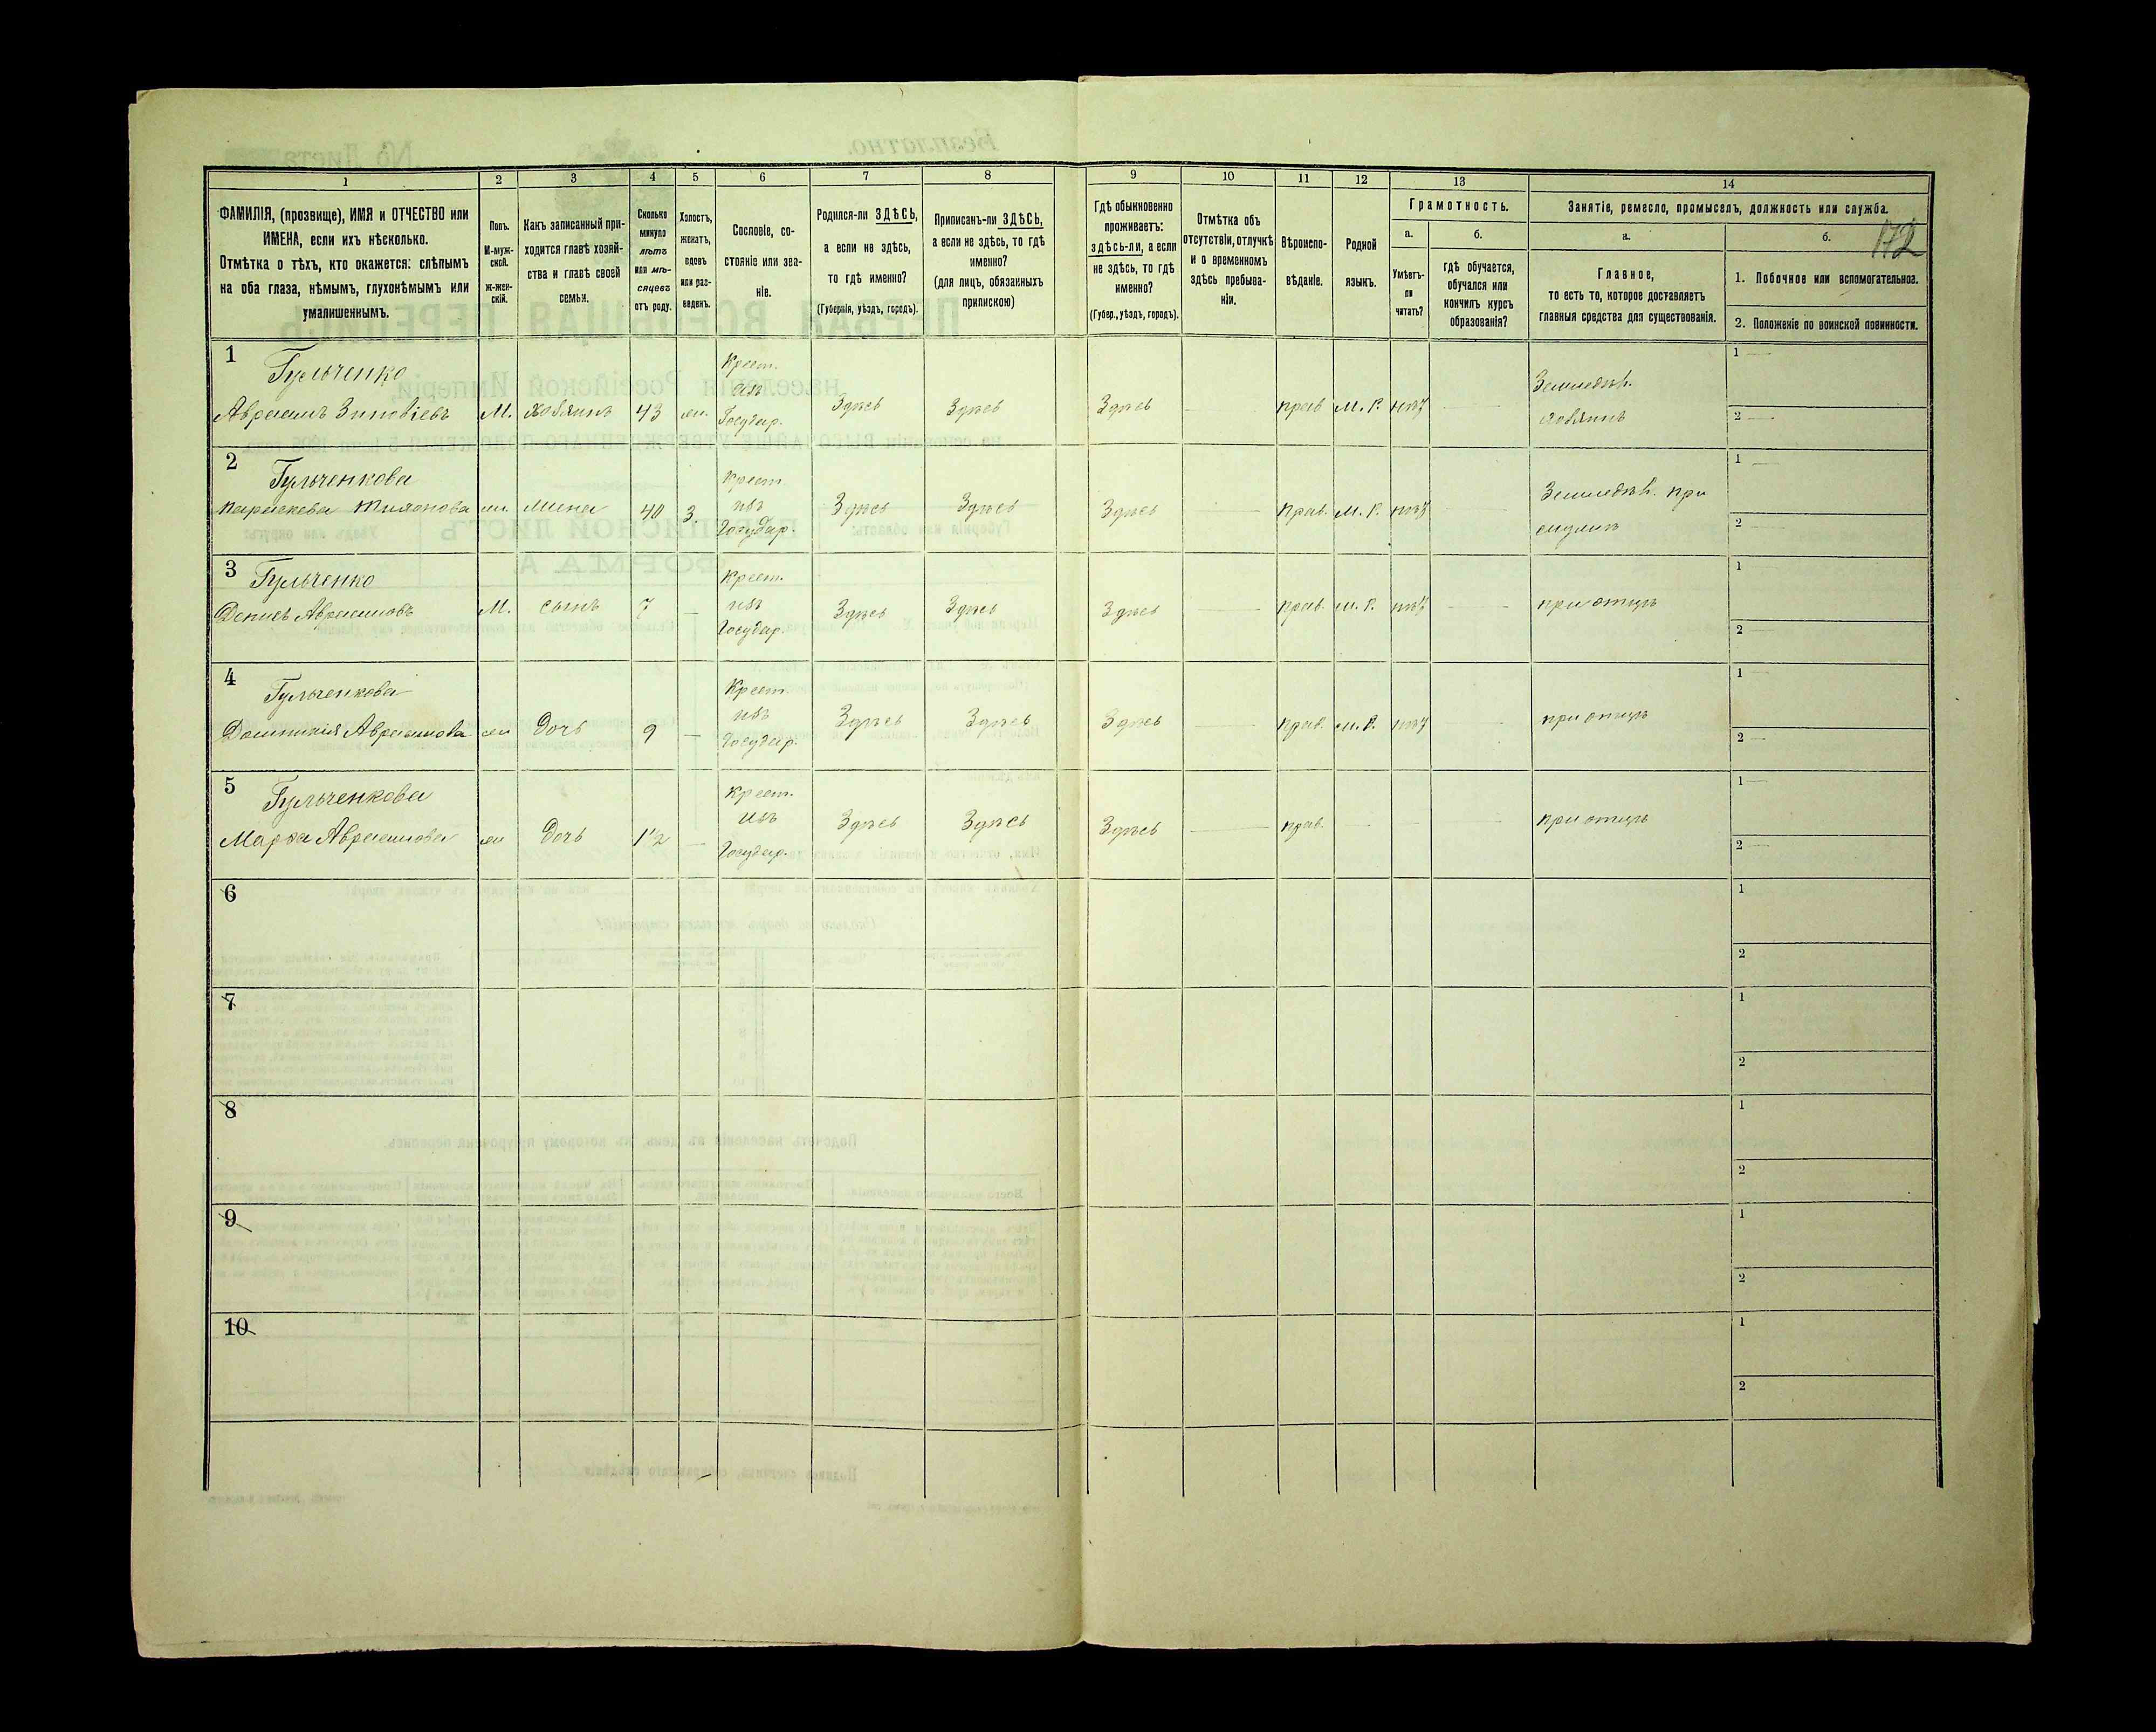 172
1 2 3 4 5 6 7 8 9 10 11 12 13 14
ФАМИЛІЯ, (прозвище), ИМЯ и ОТЧЕСТВО или
ИМЕНА, если ихъ нѣсколько.
Отмѣтка о тѣхъ, кто окажется: слѣпымъ
на оба глаза, нѣмымъ, глухонѣмымъ или
умалишеннымъ.
Полъ.
М-муж-
ской.
ж-жен-
скій.
Какъ записанный при-
ходится главѣ хозяй-
ства и главѣ своей
семьи.
Сколько
минуло
лѣтъ
или мѣ-
сяцевъ
отъ роду.
Холостъ,
женатъ,
вдовъ
или раз-
веденъ.
Сословіе, со-
стояніе или зва-
ніе.
Родился-ли ЗДѢСЬ,
а если не здѣсь,
то гдѣ именно?
(Губернія, уѣздъ, городъ).
Приписанъ-ли ЗДѢСЬ,
а если не здѣсь, то гдѣ
именно?
(для лицъ, обязанныхъ
припискою)
Гдѣ обыкновенно
проживаетъ:
здѣсь-ли, а если
не здѣсь, то гдѣ
именно?
(Губер., уѣздъ, городъ).
Отмѣтка объ
отсутствіи, отлучкѣ
и о временномъ
здѣсь пребыва-
ніи.
Вѣроиспо-
вѣданіе.
Родной
языкъ.
Грамотность.
а.
Умѣетъ-
ли
читать?
б.
гдѣ обучается,
обучался или
кончилъ курсъ
образованія?
Занятіе, ремесло, промыселъ, должность или служба.
а.
Главное,
то есть то, которое доставляетъ
главныя средства для существованія.
б.
1. Побочное или вспомогательное.
2. Положеніе по воинской повинности.
1
Гульченко
Авраамъ Зиновіевъ М. хозяинъ 43 ж.
Крест.
изъ
Государ.
Здѣсь Здѣсь Здѣсь — прав М. Р. нѣт —
Земледѣл.
хозяинъ
1 —
2 —
2
Гульченкова
Параскева Тихонова ж. жена 40 З.
Крест.
изъ
Государ.
Здѣсь Здѣсь Здѣсь — прав. М. Р. нѣт —
Земледѣл. при
мужѣ
1 —
2 —
3
Гульченко
Денисъ Авраамовъ М. сынъ 7 —
Крест.
изъ
Государ.
Здѣсь Здѣсь Здѣсь — прав. М. Р. нѣт —
при отцѣ
1 —
2 —
4
Гульченкова
Домникія Авраамова ж дочь 9 —
Крест.
изъ
Государ.
Здѣсь Здѣсь Здѣсь — прав. М. Р. нѣт —
при отцѣ
1 —
2 —
5
Гульченкова
Марфа Авраамова ж дочь 1½ —
Крест.
изъ
Государ.
Здѣсь Здѣсь Здѣсь — прав. — — —
при отцѣ
1 —
2 —
6
1
2
7
1
2
8
1
2
9
1
2
10
1
2